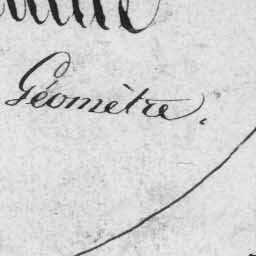 Géomètre.